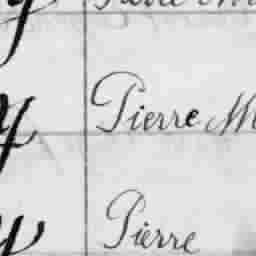 y Pierre M
y Pierre